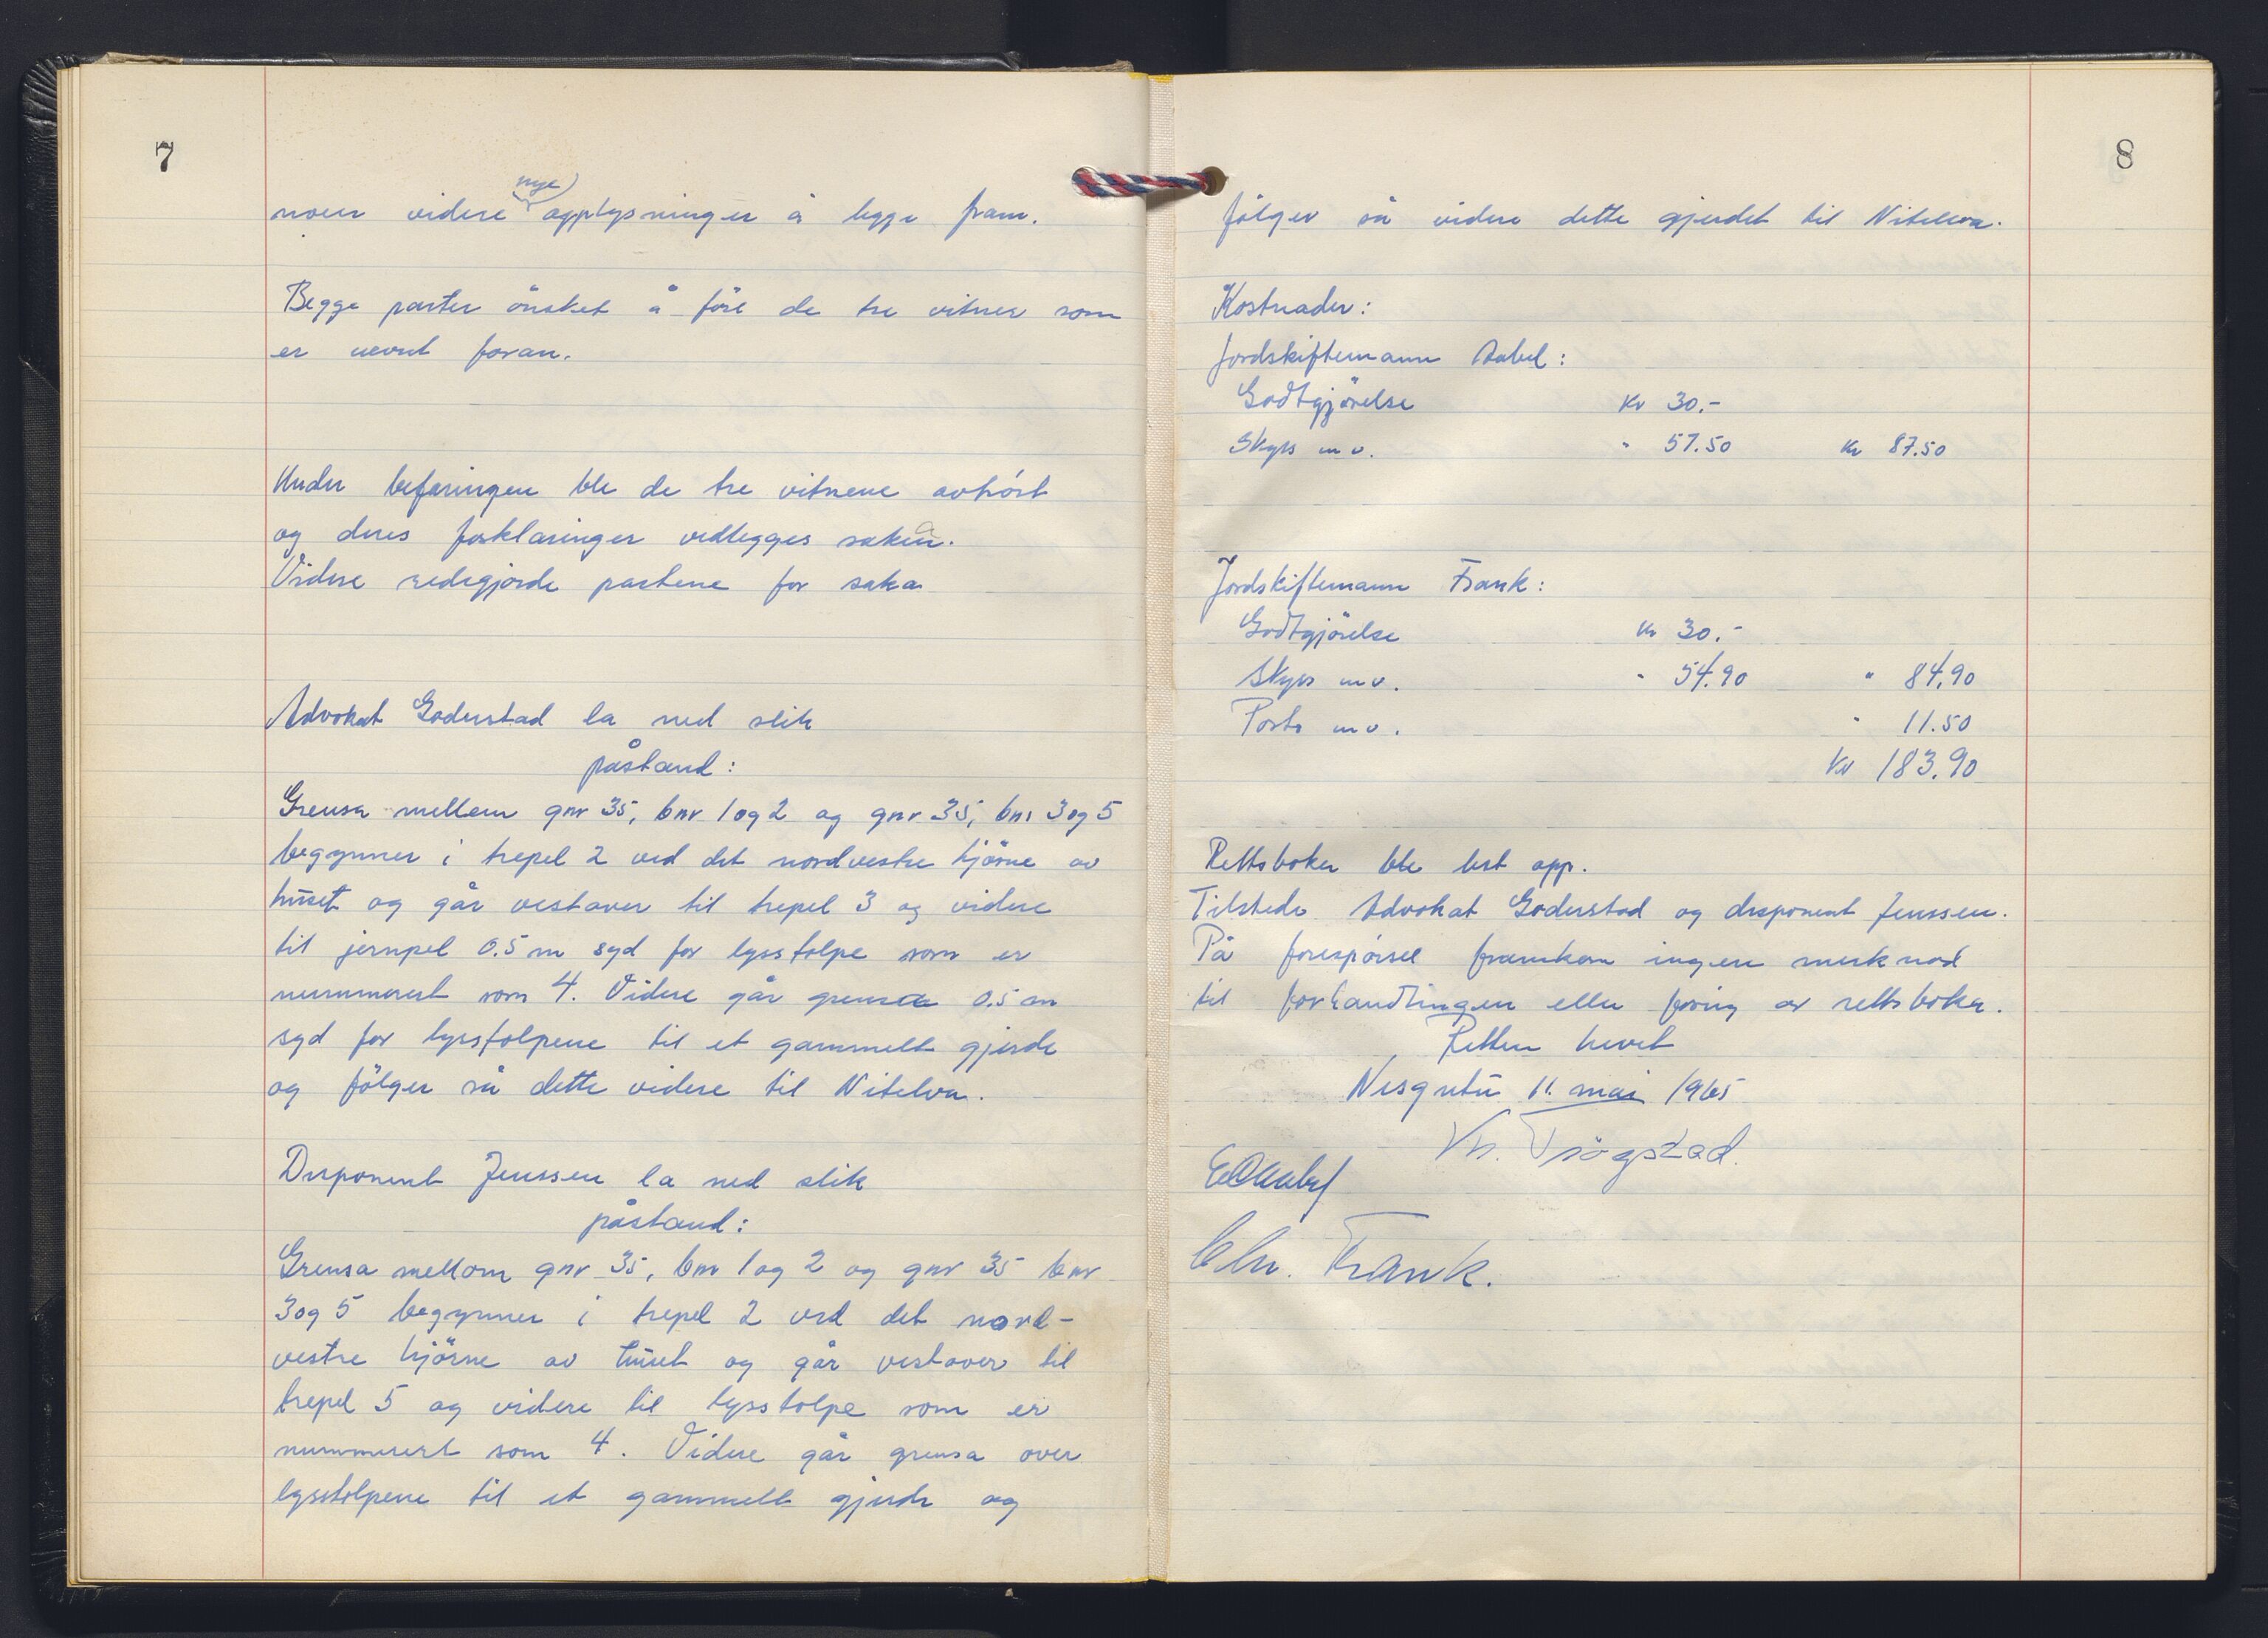 7
noen videre nye opplysninger å legge fram.
Begge parter önsket å före de tre vitner som
er nevnt foran.
Under befaringen ble de tre vitnene avhört
og deres forklaringer vedlegges saka.
Videre redegjorde partene for saka
Advokat Goderstad la ned slik
påstand:
Grensa mellom gnr 35, bnr 1 og 2 og gnr 35, bnr 3 og 5
begynner i trepel 2 ved det nordvestre hjörne av
huset og går vestover til trepel 3 og videre
til jernpel 0.5 m syd for lysstolpe som er
nummerert som 4. Videre går grensa 0.5 m
syd for lysstolpene til et gammelt gjerde
og fölger så dette videre til Nitelva.
Disponent Jenssen la ned slik
påstand:
Grensa mellom gnr 35, bnr 1 og 2 og gnr 35 bnr
3 og 5 begynner i trepel 2 ved det nord-
vestre hjörne av huset og går vestover til
trepel 5 og videre til lysstolpe som er
nummerert som 4. Videre går grensa over
lysstolpene til et gammelt gjerde og
8
fölger så videre dette gjerdet til Nitelva.
Kostnader:
Jordskiftemann Aabel:
Godtgjörelse Kr 30.-
Skyss m v. " 57.50 Kr 87.50
Jordskiftemann Frank:
Godtgjörelse Kr 30.-
Skyss m v. " 54.90 " 84.90
Porto m v. " 11.50
Kr 183.90
Rettsboka ble lest opp.
Tilstede Advokat Goderstad og disponent Jenssen.
På forespörsel framkom ingen merknad
til forhandlingen eller föring av rettsboka.
Retten hevet
11. mai 1965
Trögstad.
Chr. Frank.